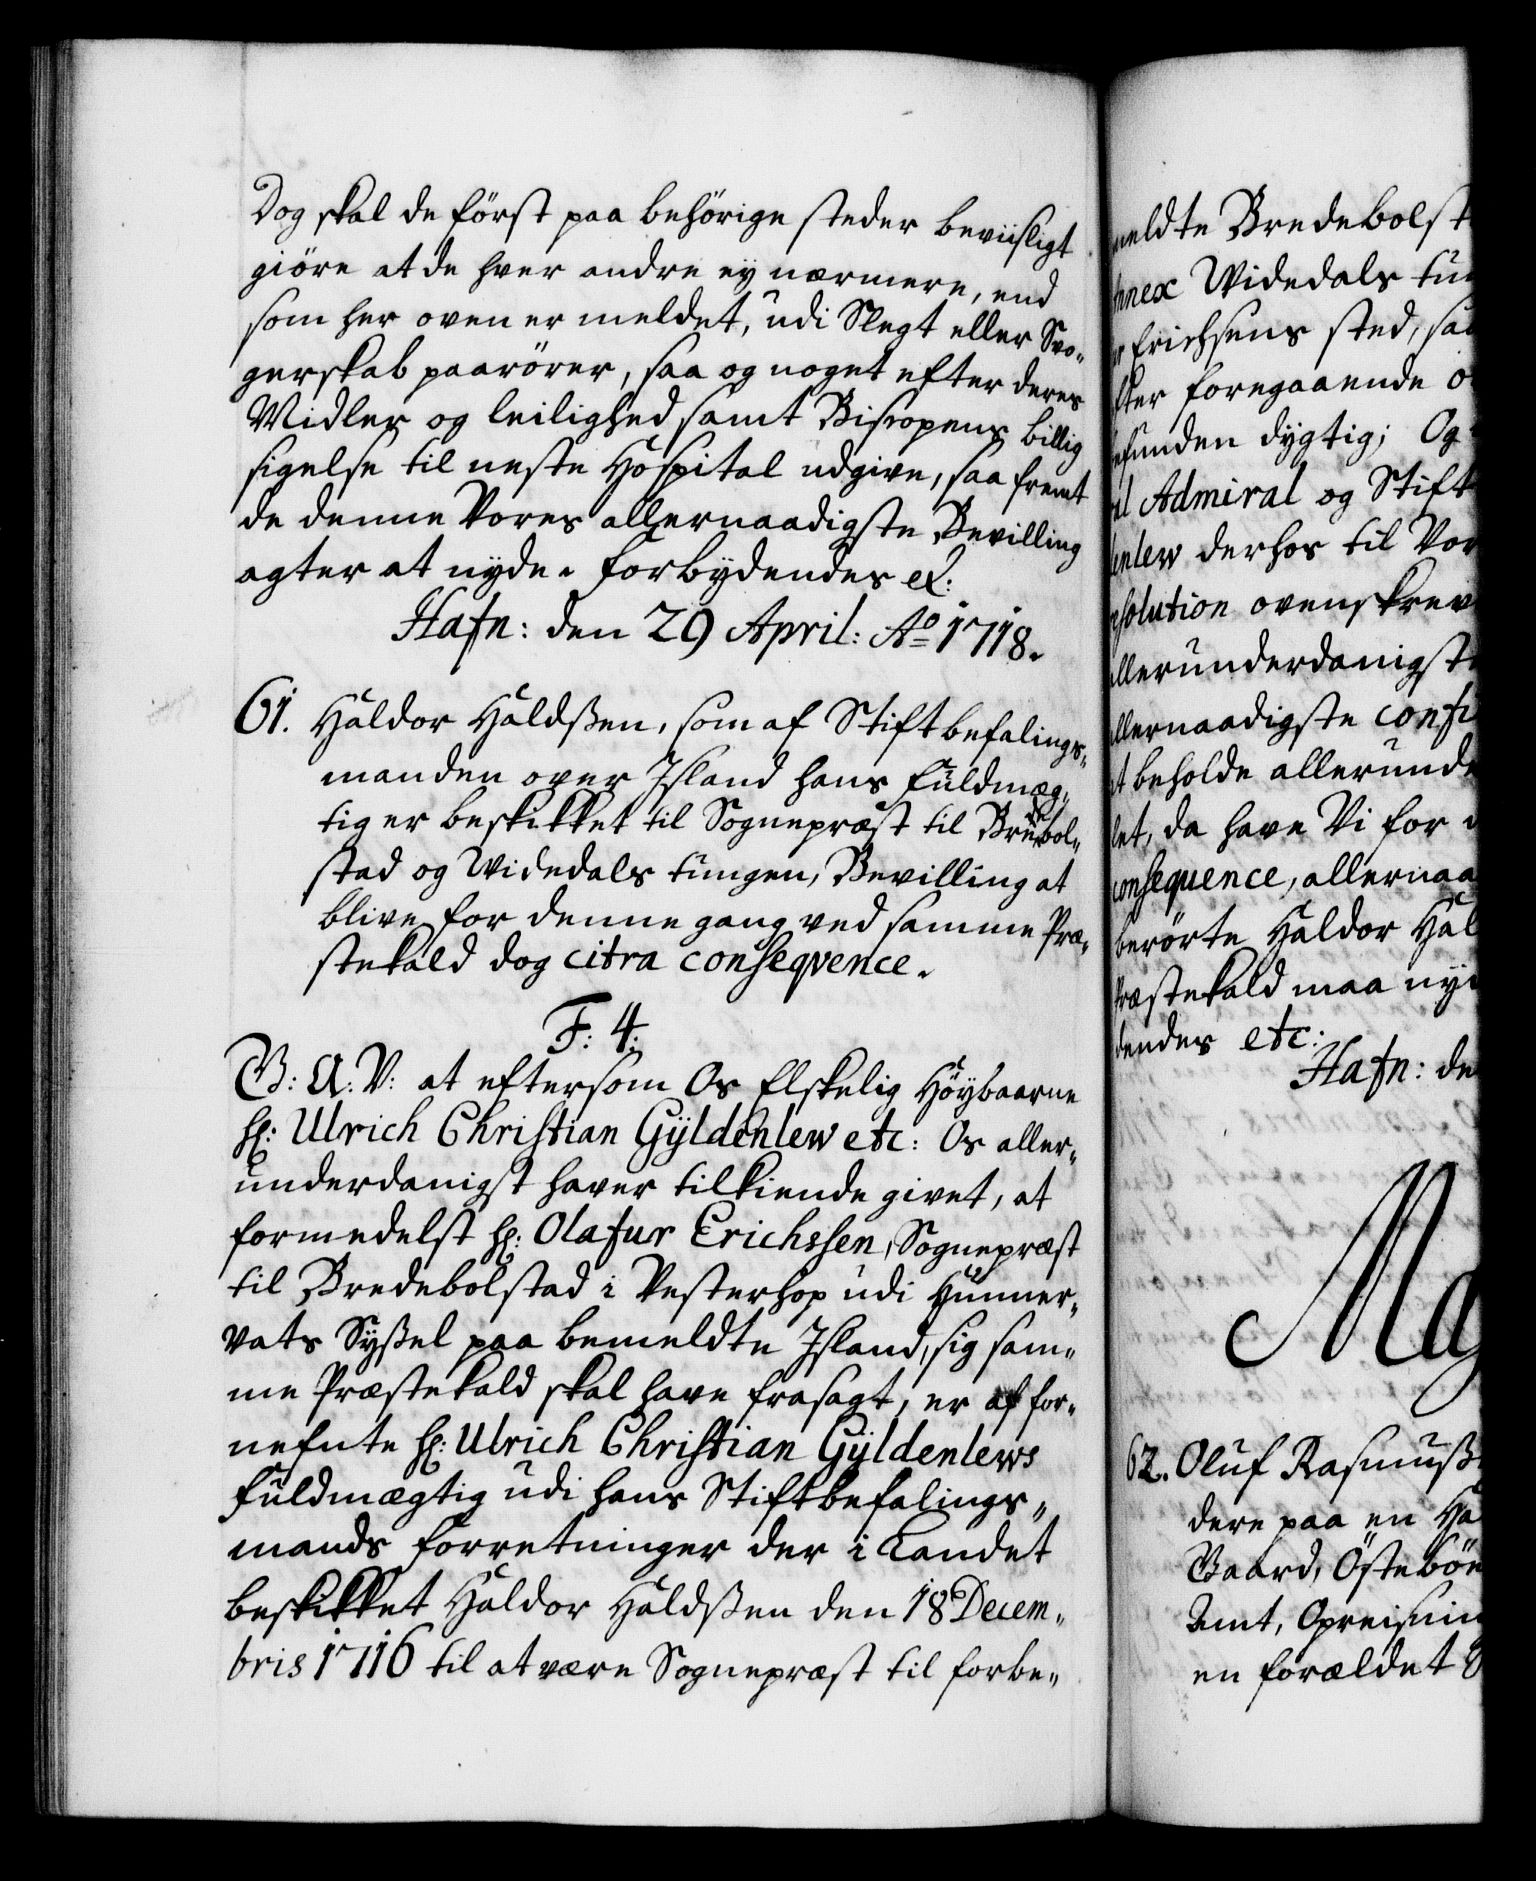 Dog skal de först paa behörige steder beviisligt
giöre at de hver andre ey nærmere, end
som her oven er meldet, udi Slegt eller Svo-
gerskab paarörer, saa og noget efter deres
Midler og leilighed samt Biscopens billig
sigelse til neste Hospital udgive, saa fremt
de denne Vores allernaadigste Bevilling
agter at nyde. Forbydendes etc:
Hafn: den 29 April: Ao 1718.
61. Haldor Haldsßen, som af Stiftbefalings-
manden over Island hans fuldmæg-
tig er beskikket til Sognepræst til Bredebol-
stad og Widedals tungen, Bevilling at
blive for denne gang ved samme Præ-
stekald dog citra conseqvence.
F: 4:
G: A: V: at eftersom Os Elskelig Höybaarne
Hr: Ulrich Christian Gÿldenlew etc: Os aller-
underdanigst haver tilkiende givet, at
formedelst Hr: Olafur Erichssen, Sognepræst
til Bredebolstad i Vesterhop udi Hunner-
vats Syßel paa bemeldte Island, sig sam-
me Præstekald skal have frasagt, er af for-
nefnte Hr: Ulrich Christian Gÿldenlews
fuldmægtig udi hans Stiftbefalings-
mands forretninger der i Landet
beskikket Haldor Haldsßen den 18 Decem-
bris 1716 til at være Sognepræst til forbe-
meldte Bredebolst
Annex Widedals tun
Erichsens sted, saa
efter foregaaende
befunden dygtig; Og
Admiral og Stift
denlew derhos til Vor
resolution ovenskrev
allerunderdanigst
allernaadigste confi
at beholde allerunde
let, da have Vi for
consequence, allernaa
berörte Haldor Hal
Præstekald maa nyd
dendes etc:
Hafn: de
Ma
62. Oluf Rasmuß
dere paa en Ha
Gaard, Östeböe
Amt, Opreisnin
en forældet